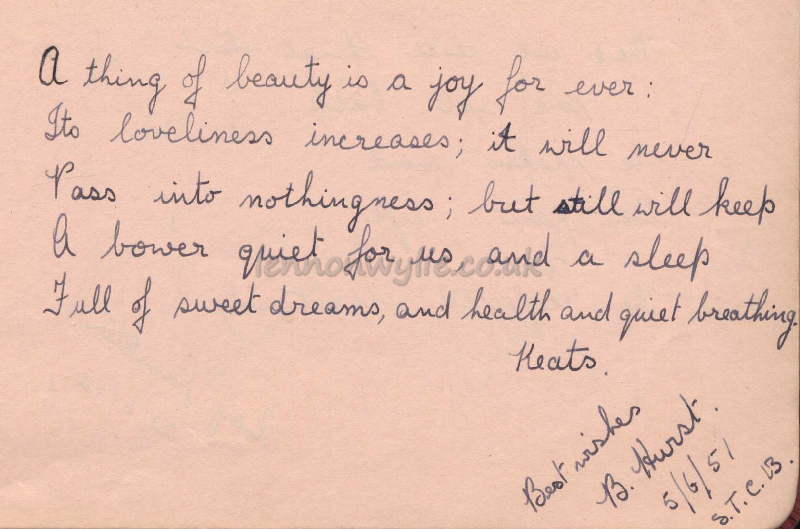 A thing of beauty is a joy for ever:
Its loveliness increases; it will never
Pass into nothingness; but still will keep
A bower quiet for us, and a sleep
lennonwylie.co.uk
Full of sweet dreams, and health and quiet breathing.
Keats.
Best wishes
B. Hurst.
5/6/51
S.T.C.B.